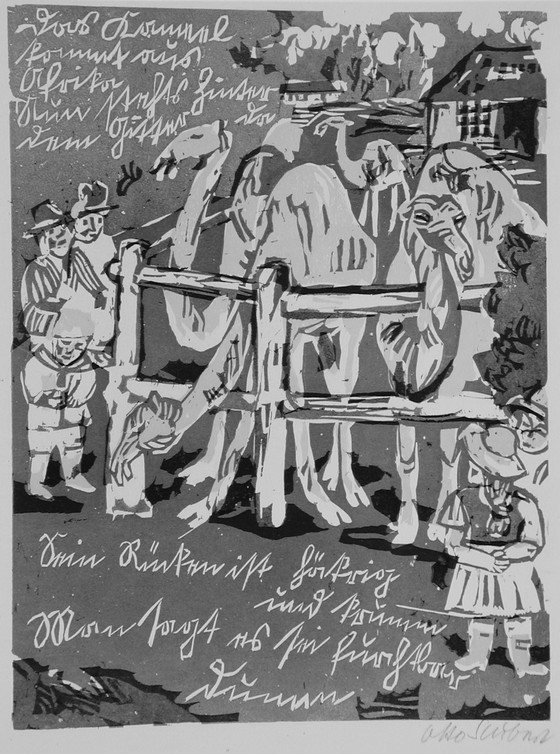 Das Kameel
kommt aus
Afrika
Nun stehts hinter
dem Gitter da
Sein Rücken ist höckrig
und krumm
Man sagt es sei furchtbar
dumm